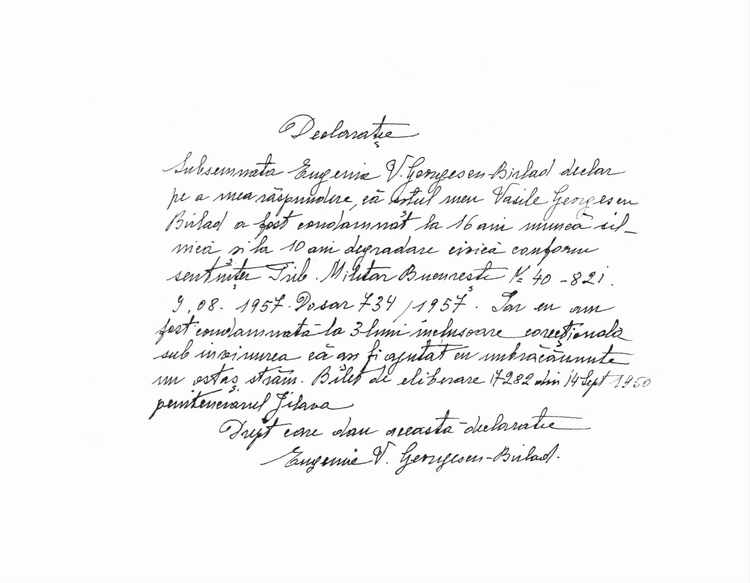 Declarație
Subsemnata Eugenia V. Georgescu-Bîrlad declar
pe a mea răspundere, că soțul meu Vasile Georgescu
Bîrlad a fost condamnat la 16 ani muncă sil-
nică și la 10 ani degradare civică conform
sentinței Trib. Militar București № 40-821.
9.08.1957. Dosar 734/1957. Iar eu am
fost condamnată la 3 luni închisoare corecțională
sub învinuirea că aș fi ajutat cu îmbrăcăminte
un ostaș străin. Bilet de eliberare 17282 din 14 Sept 1950
penitenciarul Jilava
Drept care dau aceasta declaratie
Eugenia V. Georgescu-Bîrlad.